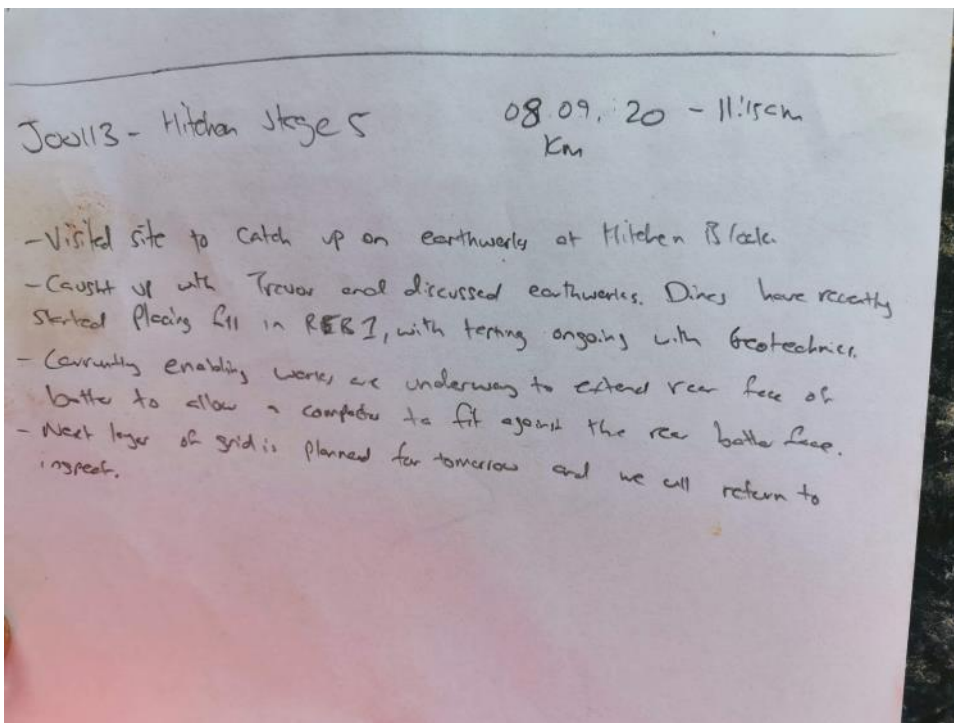 J00113 - Hitchen Stage 5 08.09.20 - 11:15am
KM
- Visited site to catch up on earthworks at Hitchen Block.
- Caught up with Trevor and discussed earthworks. Dines have recently
started placing fill in REB1, with testing ongoing with Geotechnics.
- Currently enabling works are underway to extend rear face of
batter to allow a compactor to fit against the rear batter face.
- Next layer of grid is planned for tomorrow and we will return to
inspect.